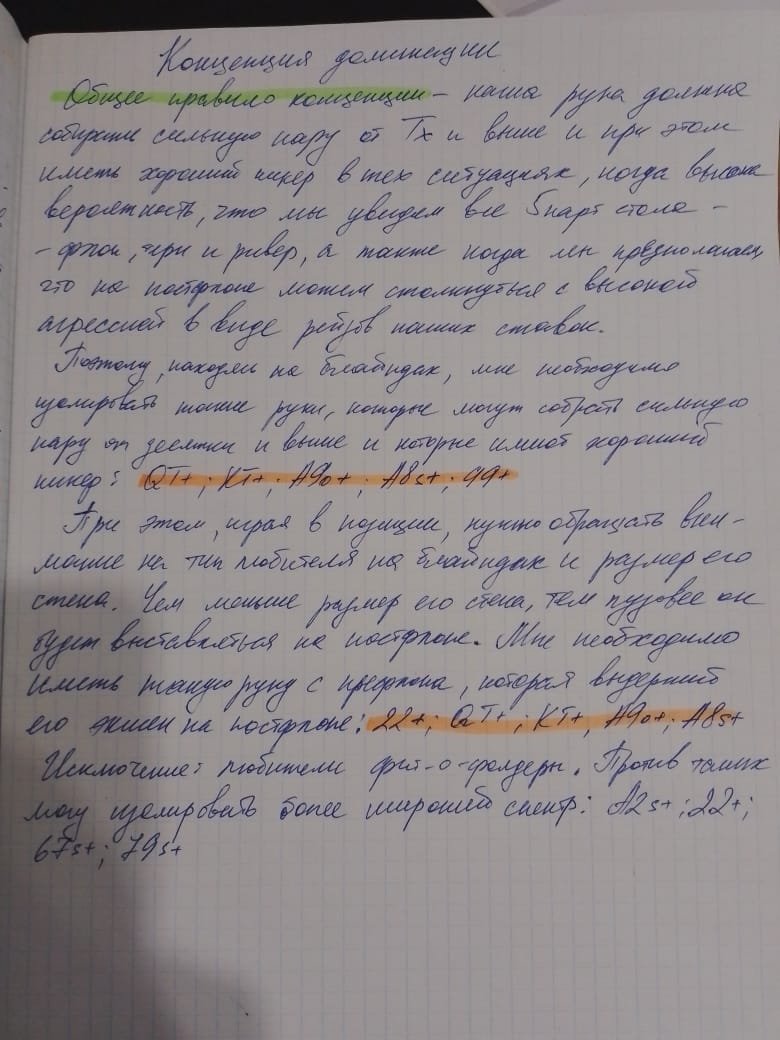 Концепция доминации
Общее правило концепции – наша рука должна
собирать сильную пару от Тх и выше и при этом
иметь хороший кикер в тех ситуациях, когда высока
вероятность, что мы увидим все 5 карт стола –
– флоп, тёрн и ривер, а также когда мы предполагаем,
что на постфлопе можем столкнуться с высокой
агрессией в виде рейзов наших ставок.
Поэтому, находясь на блайндах, мне необходимо
изолировать такие руки, которые могут собрать сильную
пару от десятки и выше и которые имеют хороший
кикер: QT+; KT+; A9o+; A8s+; 99+
При этом, играя в позиции, нужно обращать вни-
мание на тип любителя на блайндах и размер его
стека. Чем меньше размер его стека, тем пузовее он
будет выставляться на постфлопе. Мне необходимо
иметь такую руку с префлопа, которая выдержит
его экшен на постфлопе: 22+; QT+; KT+, A9o+; A8s+
Исключение: любители фит-о-фолдеры. Против таких
могу изолировать более широкий спектр: A2s+; 22+;
67s+; 79s+